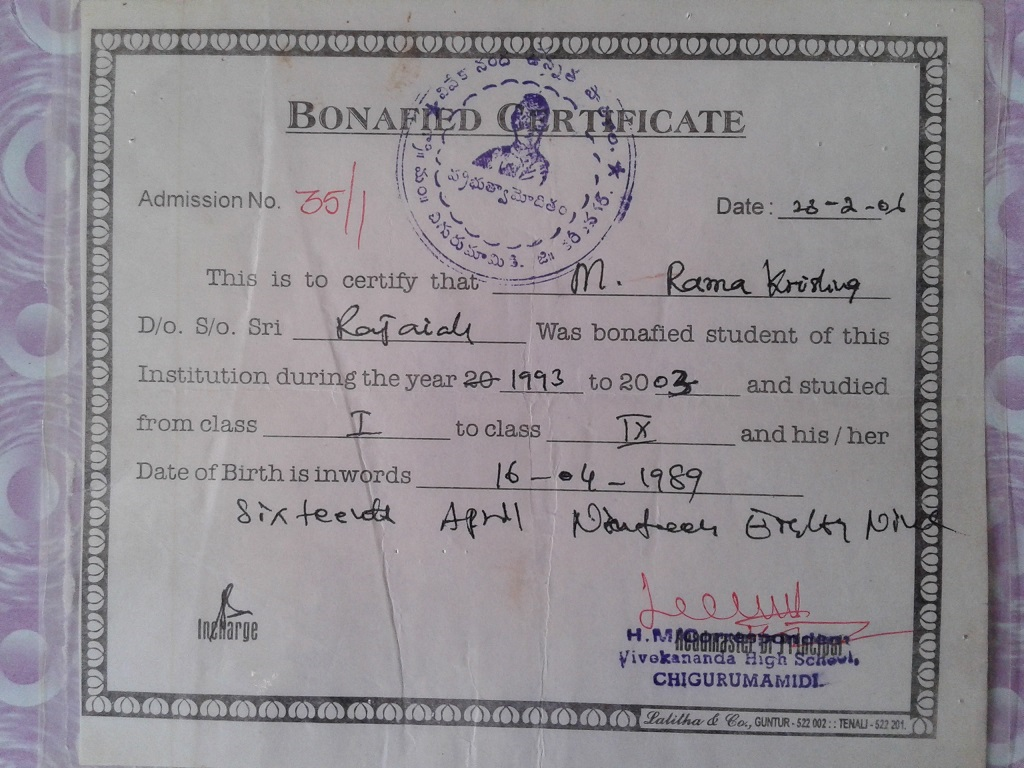 BONAFIED CERTIFICATE
ప్రభుత్వామోదితం
Admission No. 35/1 Date : 28-2-06
This is to certify that M. Rama Krishna
D/o. S/o. Sri Rajaiah Was bonafied student of this
Institution during the year 20 1993 to 2003 and studied
from class I to class IX and his / her
Date of Birth is inwords 16-04-1989
Sixteenth April Nineteen Eighty Nine
Incharge
Headmaster or Principal
Vivekananda High School,
CHIGURUMAMIDI.
Lalitha & Co., GUNTUR - 522 002 : : TENALI - 522 201.